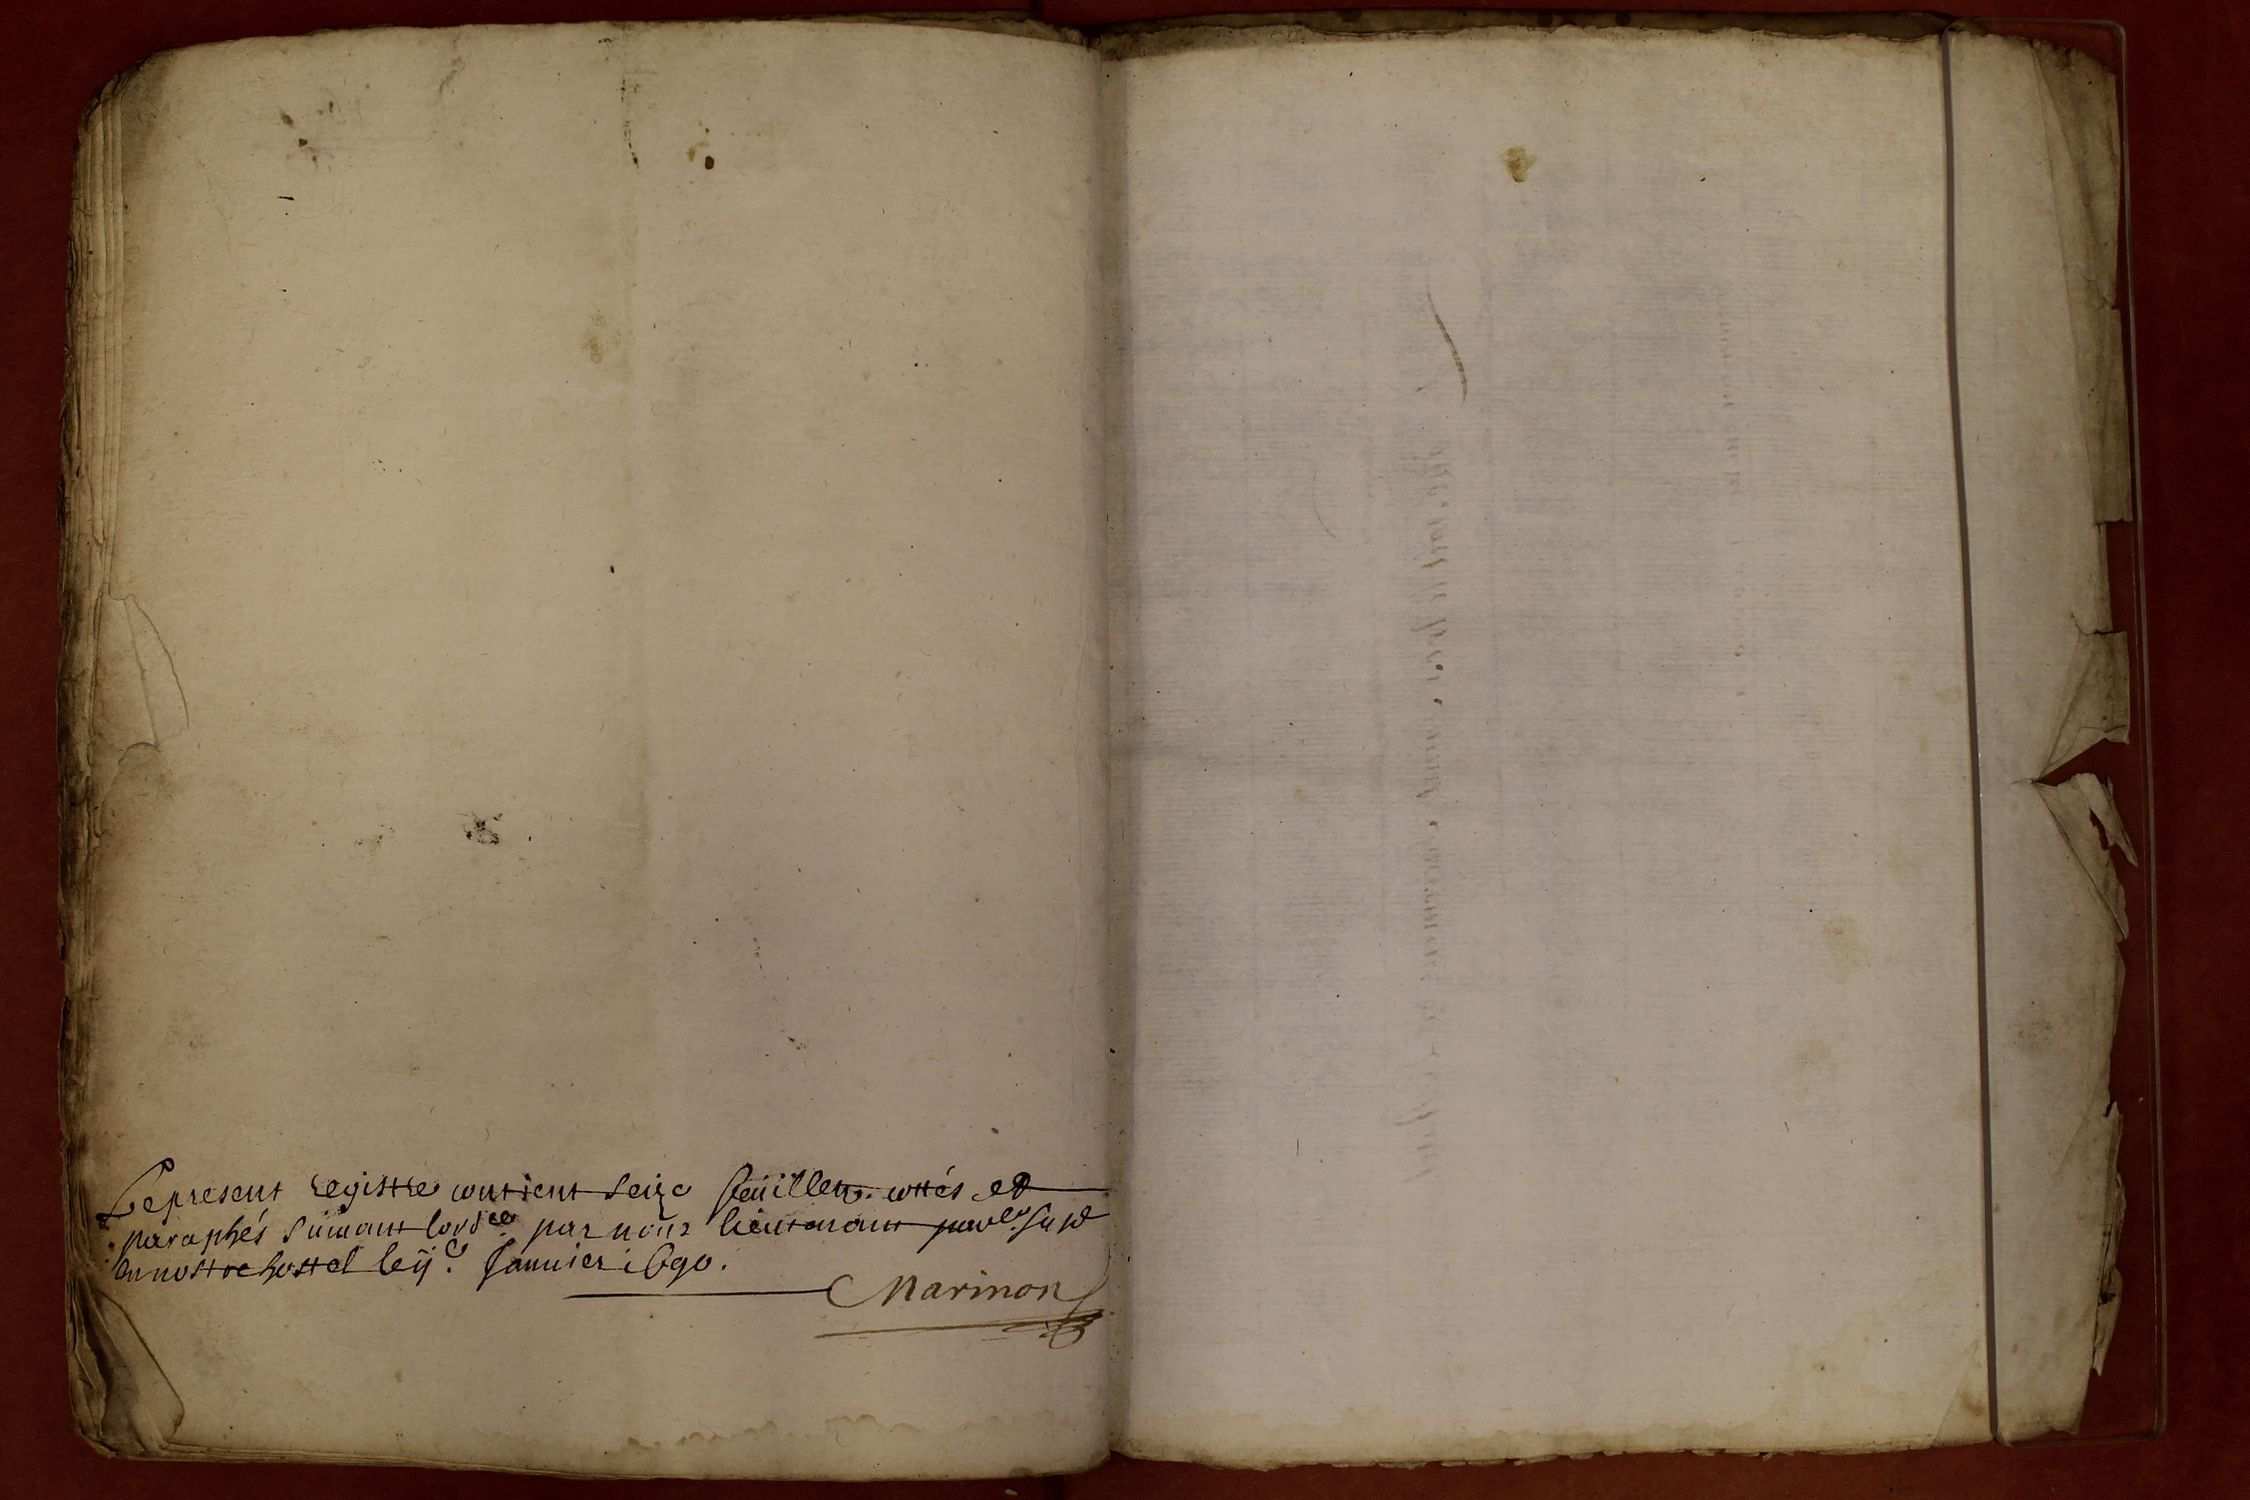 Le present registre contient seize feüillets cottés et
paraphés suiuant lord.ce par nous lieutenant
en nostre hostel le ij.e Januier 1690.
Marinon